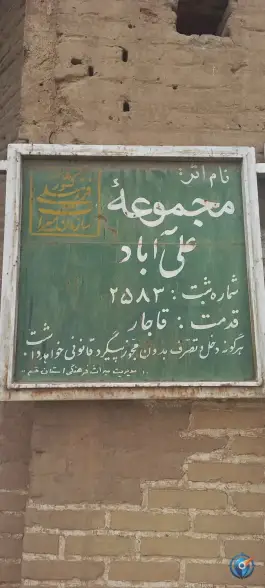 نام اثر:
مجموعهٔ
علی آباد
شماره ثبت : ۲۵۸۳
قدمت : قاجار
هرگونه دخل و تصرف بدون مجوز پیگرد قانونی خواهد داشت
مدیریت میراث فرهنگی استان قم
سازمان میراث